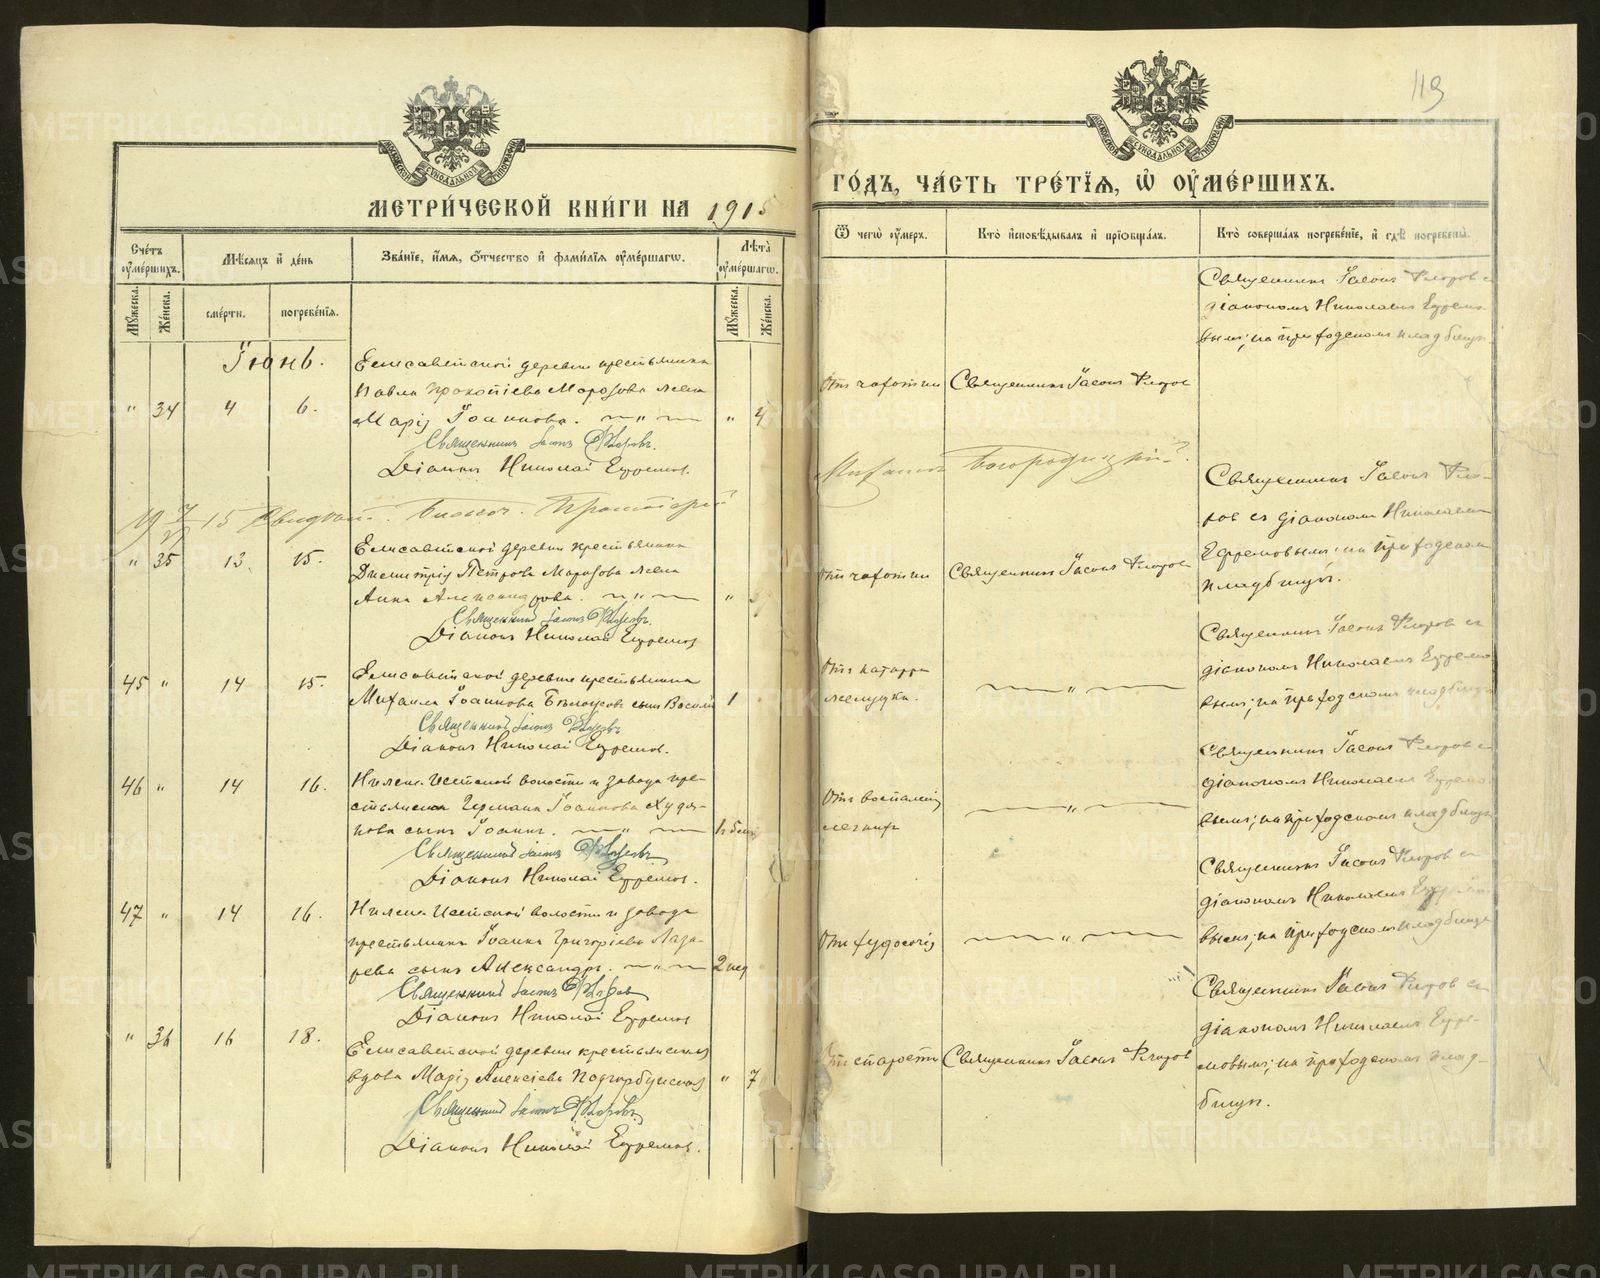 119
МЕТРИ́ЧЕСКОЙ КНИ́ГИ НА 1915
ГО́ДЪ, ЧА́СТЬ ТРЕ́ТІѦ, Ѽ ОУ҆МЕ́РШИХЪ.
Сче́тъ оу҆ме́ршихъ.
Мѣ́сяцъ и҆ де́нь
Зва́нїе, и҆́мя, ѻ҆́тчество и҆ фами́лїя оу҆ме́ршагѡ.
Лѣ́та оу҆ме́ршагѡ.
Ѿ чегѡ̀ оу҆́меръ.
Кто̀ и҆сповѣ́дывалъ и҆ прїѡбща́лъ.
Кто̀ соверша́лъ погребе́нїе, и҆ гдѣ̀ погребены̀.
Му́жеска.
Же́нска.
сме́рти.
погребе́нїя.
Му́жеска.
Же́нска.
Іюнь.
" 34 4 6.
Елисаветской деревни крестьянина
Павла Прокопіева Морозова жена
Марія Іоаннова. — " —
Священникъ Іасонъ Флоровъ.
Діаконъ Николай Ефремов.
"
От чахотки
Священникъ Іасонъ Флоров
Священникъ Іасонъ Флоров с
діакономъ Николаемъ Ефремо-
вым; на приходском кладбищѣ
" 35 13. 15.
Елисаветской деревни крестьянина
Димитрія Петрова Морозова жена
Анна Александрова. — " —
Священникъ Іасонъ Флоровъ.
Діаконъ Николай Ефремов
"
От чахотки
Священникъ Іасонъ Флоров
Священникъ Іасонъ Фло-
ров съ діакономъ Николаемъ
Ефремовымъ; на приходском
кладбищѣ.
45 " 14 15.
Елисаветской деревни крестьянина
Михаила Іоаннова Бѣлоусова сынъ Василій
Священникъ Іасонъ Флоровъ
Діаконъ Николай Ефремов.
1
Отъ катарра
желудка.
— " —
Священникъ Іасонъ Флоров съ
діакономъ Николаемъ Ефремо-
вым; на приходском кладбищѣ
46 " 14 16.
Нижне-Исетской волости и завода кре-
стьянина Германа Іоаннова Худя-
кова сынъ Іоаннъ. — " —
Священникъ Іасонъ Флоровъ
Діаконъ Николай Ефремов.
Отъ воспаленія
легкихъ
— " —
Священникъ Іасонъ Флоров с
діакономъ Николаемъ Ефремо-
вымъ; на приходском кладбищѣ
47 " 14 16.
Нижне-Исетской волости и завода
крестьянина Іоанна Григоріева Лаза-
рева сынъ Александръ. — " —
Священникъ Іасонъ Флоров
Діаконъ Николай Ефремов
2 нед
От худосочія
— " —
Священникъ Іасонъ Флоров съ
діакономъ Николаемъ Ефремо-
вымъ; на приходском кладбищѣ
" 36 16 18.
Елисаветской деревни крестьянская
вдова Марія Алексіева Подгорбунская
Священникъ Іасонъ Флоровъ
Діаконъ Николай Ефремов.
" 7
От старости
Священникъ Іасонъ Флоров
Священникъ Іасонъ Флоров съ
діакономъ Николаемъ Ефре-
мовымъ; на приходском клад-
бищѣ.
METRIKI.GASO-URAL.RU